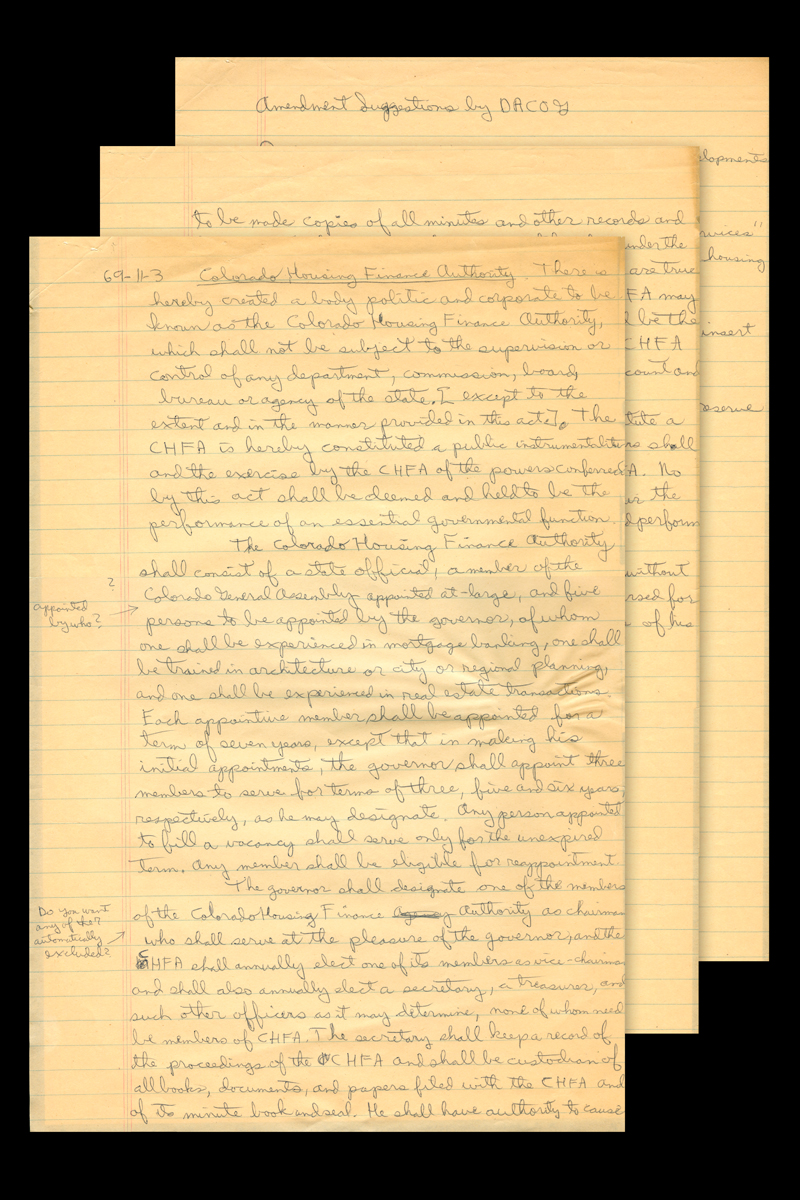 Amendment Suggestions by DACOG
lopments
rvices"
housing
insert
reserve
to be made copies of all minutes and other records and
under the
are true
FA may
be the
CHF A
count and
tute a
rs shall
A. No
er the
d perform
without
rsed for
of his
69-11-3 Colorado Housing Finance Authority. There is
hereby created a body politic and corporate to be
known as the Colorado Housing Finance Authority,
which shall not be subject to the supervision or
control of any department, commission, board,
bureau or agency of the state, [except to the
extent and in the manner provided in this act]. The
CHFA is hereby constituted a public instrumentality
and the exercise by the CHFA of the powers conferred
by this act shall be deemed and held to be the
performance of an essential governmental function.
The Colorado Housing Finance Authority
shall consist of a state official, a member of the
?
Colorado General Assembly appointed at-large, and five
appointed
by who?
persons to be appointed by the governor, of whom
one shall be experienced in mortgage banking, one shall
be trained in architecture or city or regional planning,
and one shall be experienced in real estate transactions.
Each appointive member shall be appointed for a
term of seven years, except that in making his
initial appointments, the governor shall appoint three
members to serve for terms of three, five and six years,
respectively, as he may designate. Any person appointed
to fill a vacancy shall serve only for the unexpired
term. Any member shall be eligible for reappointment.
The governor shall designate one of the members
Do you want
any of the?
automatically
excluded?
of the Colorado Housing Finance Agency Authority as chairman
who shall serve at the pleasure of the governor, and the
CHFA shall annually elect one of its members as vice-chairman
and shall also annually elect a secretary, a treasurer, and
such other officers as it may determine, none of whom need
be members of CHFA. The secretary shall keep a record of
the proceedings of the CHFA and shall be custodian of
all books, documents, and papers filed with the CHFA and
of its minute book and seal. He shall have authority to cause